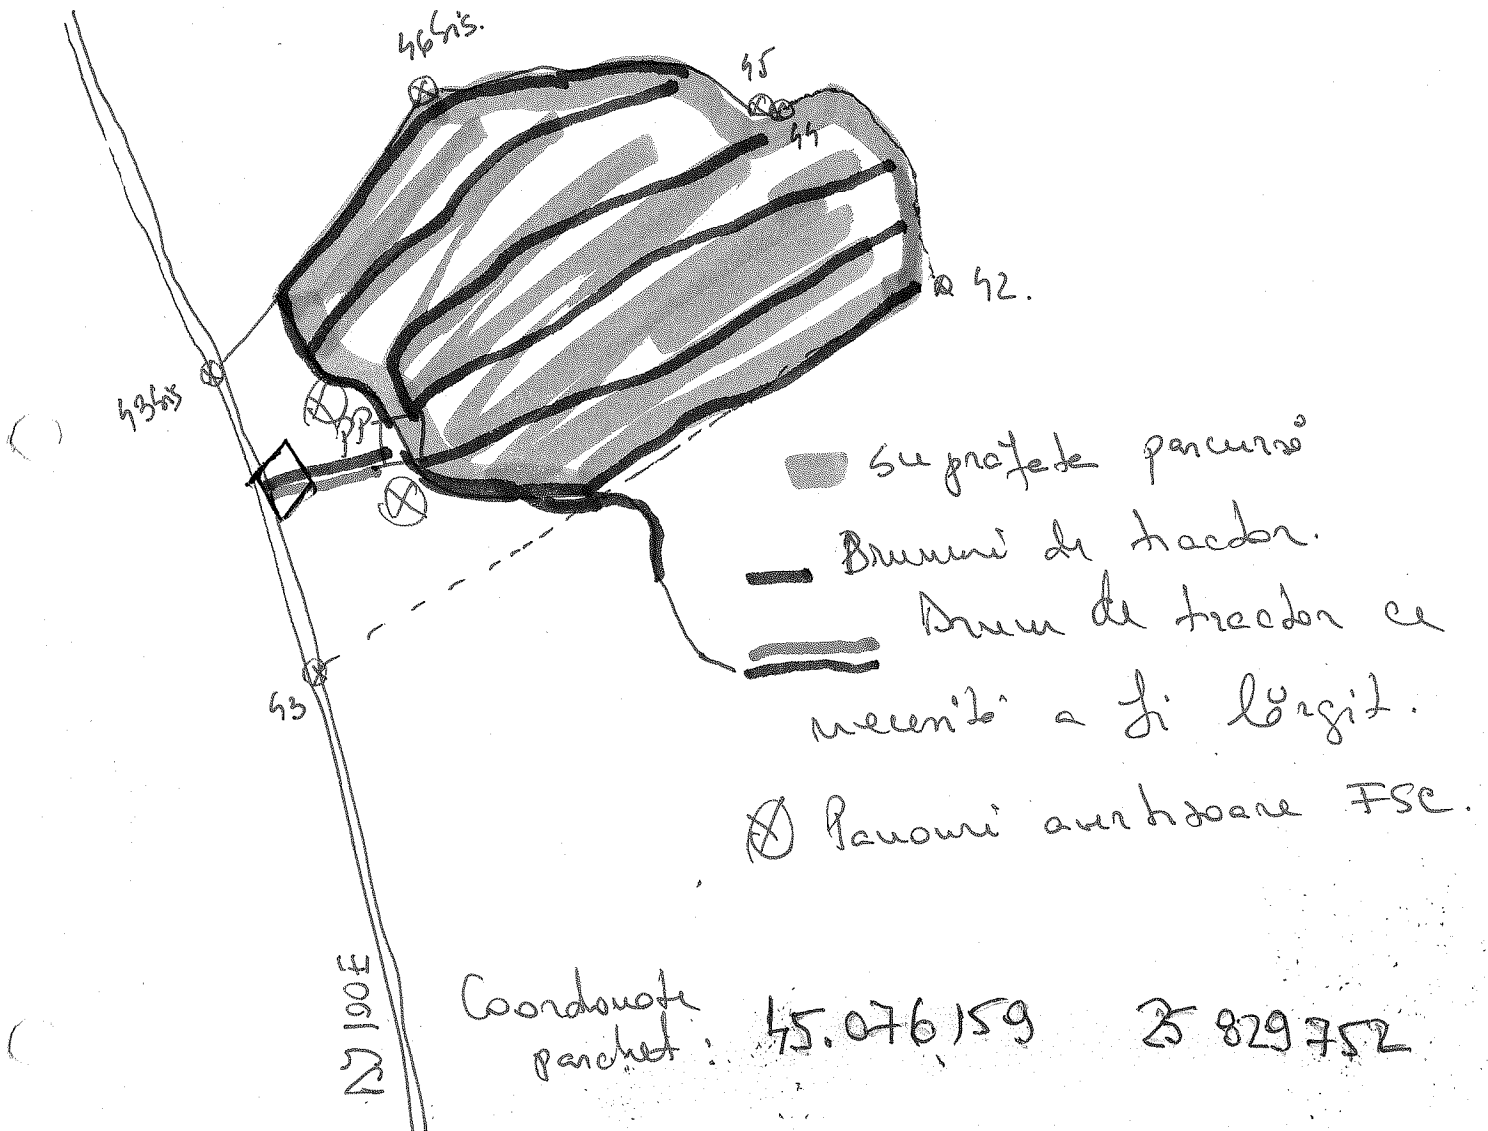 46 bis.
45
44
42.
43 bis
PP
suprafete parcursă
Drumuri de tractor.
Drum de tractor ce
necesită a fi lărgit.
Panouri avertizoare FSC.
43
DJ 100E
Coordonate
parchet: 45.076159 25 829752